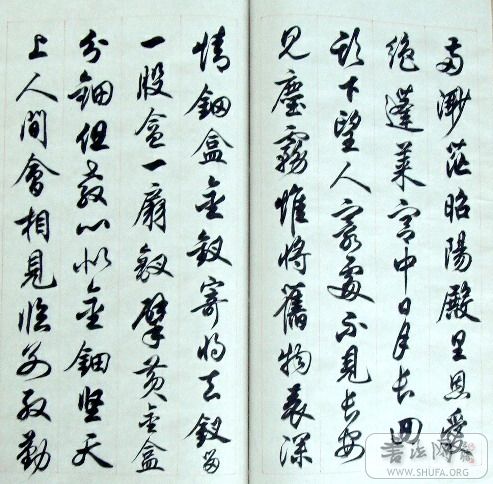 两渺茫昭陽殿里恩愛
絕蓬萊宮中日月長回
頭下望人寰處不見長安
見塵霧惟將舊物表深
情鈿盒金釵寄將去釵留
一股盒一扇釵擘黃金盒
分鈿但教心似金鈿堅天
上人間會相見臨別殷勤
書法网
WWW.SHUFA.ORG